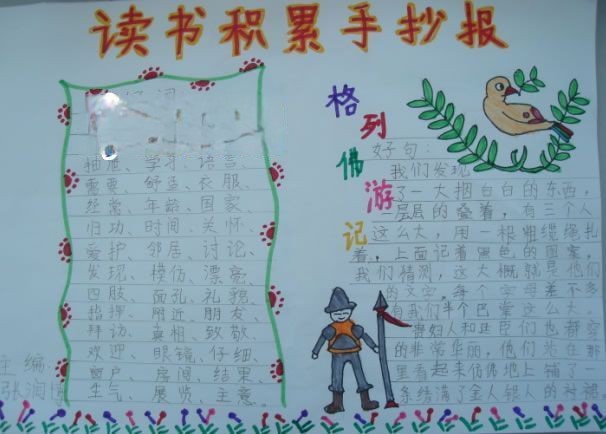 读书积累手抄报
抽泄、学习、语言、
需要、舒适、衣服、
经常、年龄、国家、
归功、时间、关怀、
爱护、邻居、讨论、
发现、模仿、漂亮、
四肢、面孔、礼貌、
指挥、附近、朋友、
拜访、真相、致敬、
欢迎、眼镜、仔细、
窗户、房间、结果、
生气、展览、主意、
主编
张润博
格列佛游记
好句：
我们发现
了一大捆白白的东西，
一层层的叠着，有三个人
这么大，用一根粗缆绳扎
着，上面记着黑色的图案，
我们猜测，这大概就是他们
的文字，每个字母差不多
有我们半个巴掌这么大。
贵妇人和丑臣们也都穿
的非常华丽，他们站在那
里看起来仿佛地上铺了一
条绣满了金人银人的衬裙